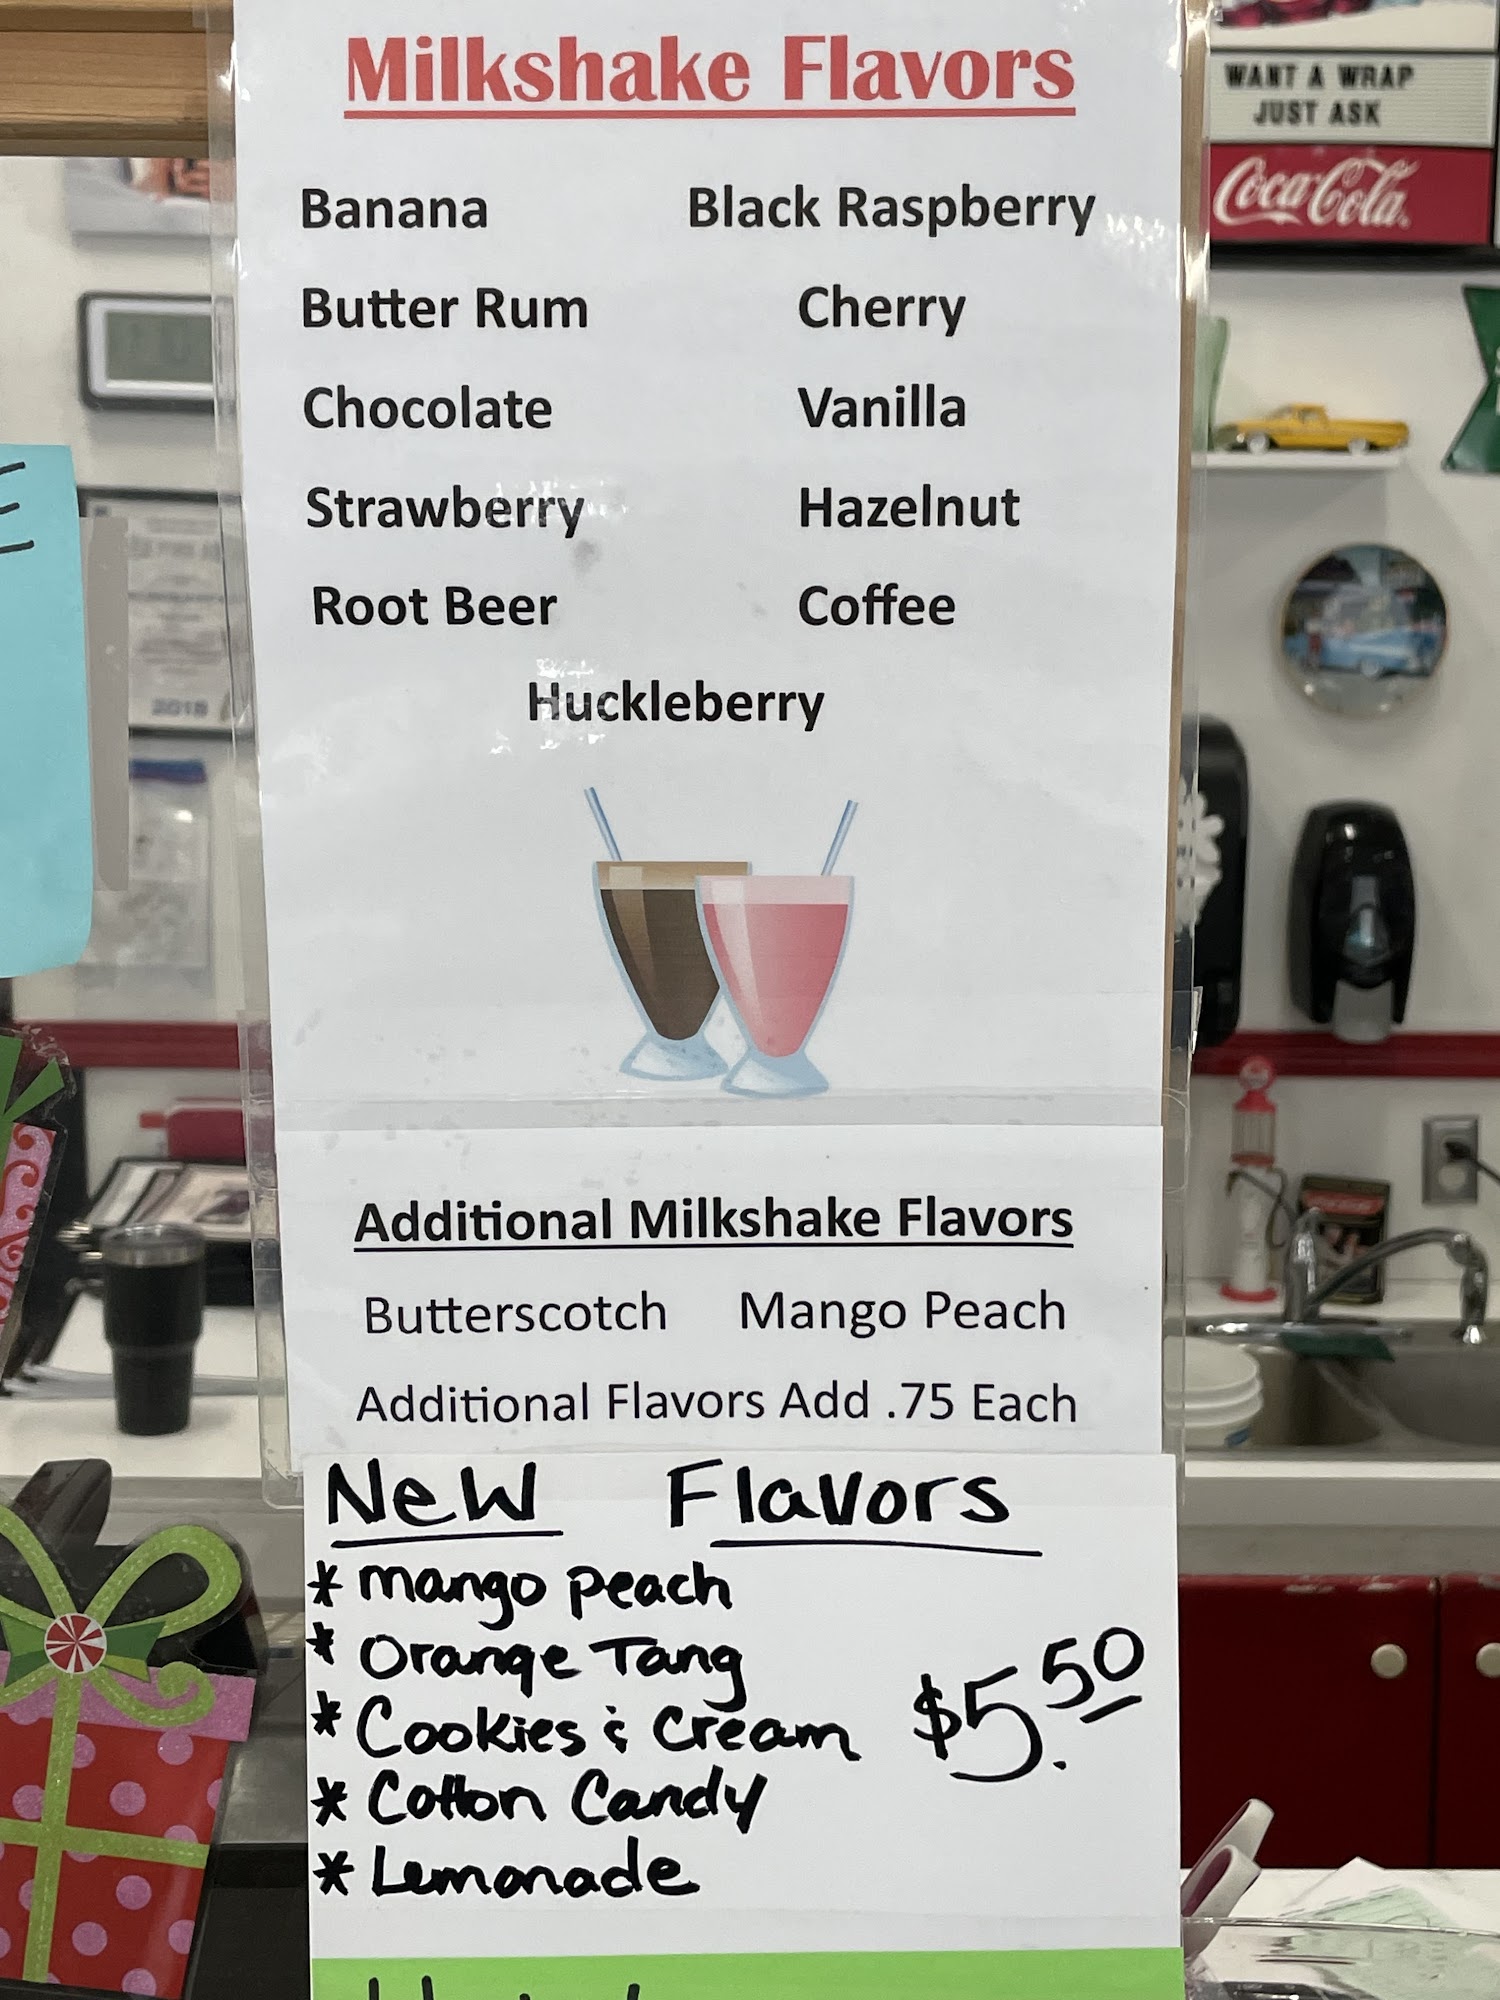 Milkshake Flavors
Banana Black Raspberry
Butter Rum Cherry
Chocolate Vanilla
Strawberry Hazelnut
Root Beer Coffee
Huckleberry
Additional Milkshake Flavors
Butterscotch Mango Peach
Additional Flavors Add .75 Each
New Flavors
* mango peach
* Orange Tang
* Cookies & Cream
* Cotton Candy
* Lemonade
$5.50
WANT A WRAP
JUST ASK
Coca-Cola
2018